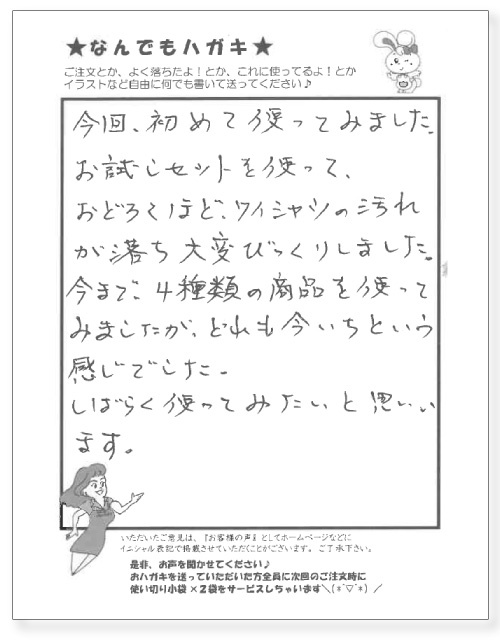 ★なんでもハガキ★
ご注文とか、よく落ちたよ！とか、これに使ってるよ！とか
イラストなど自由に何でも書いて送ってください♪
今回、初めて使ってみました。
お試しセットを使って、
おどろくほど、ワイシャツの汚れ
が落ち大変びっくりしました。
今まで、4種類の商品を使って
みましたが、どれも今いちという
感じでした。
しばらく使ってみたいと思い
ます。
いただいたご意見は、『お客様の声』としてホームページなどに
イニシャル表記で掲載させていただくことがございます。ご了承下さい。
是非、お声を聞かせてください♪
おハガキを送っていただいた方全員に次回のご注文時に
使い切り小袋×2袋をサービスしちゃいます＼(*˘▽˘*)／